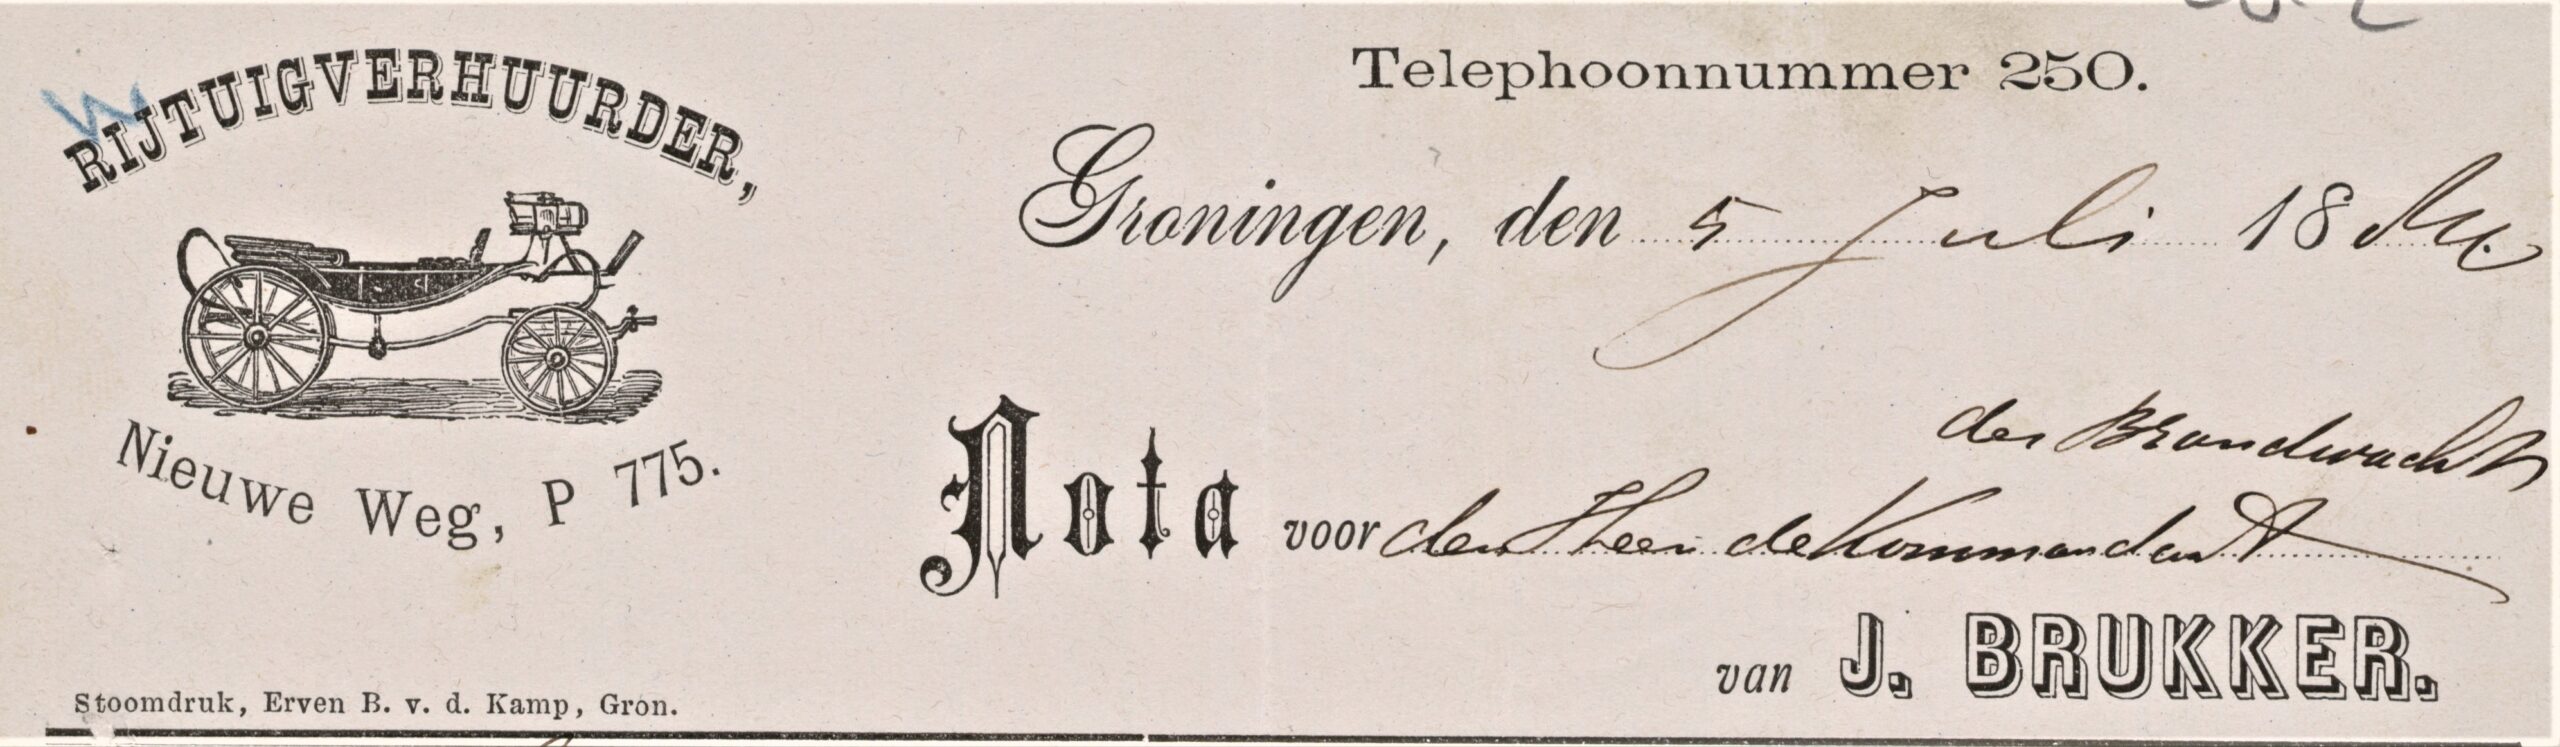 RIJTUIGVERHUURDER,
Nieuwe Weg, P 775.
Stoomdruk, Erven B. v. d. Kamp, Gron.
Telephoonnummer 250.
Groningen, den 5 Juli 18
der Brandwacht
Nota voor den Heer de Kommandant
van J. BRUKKER.